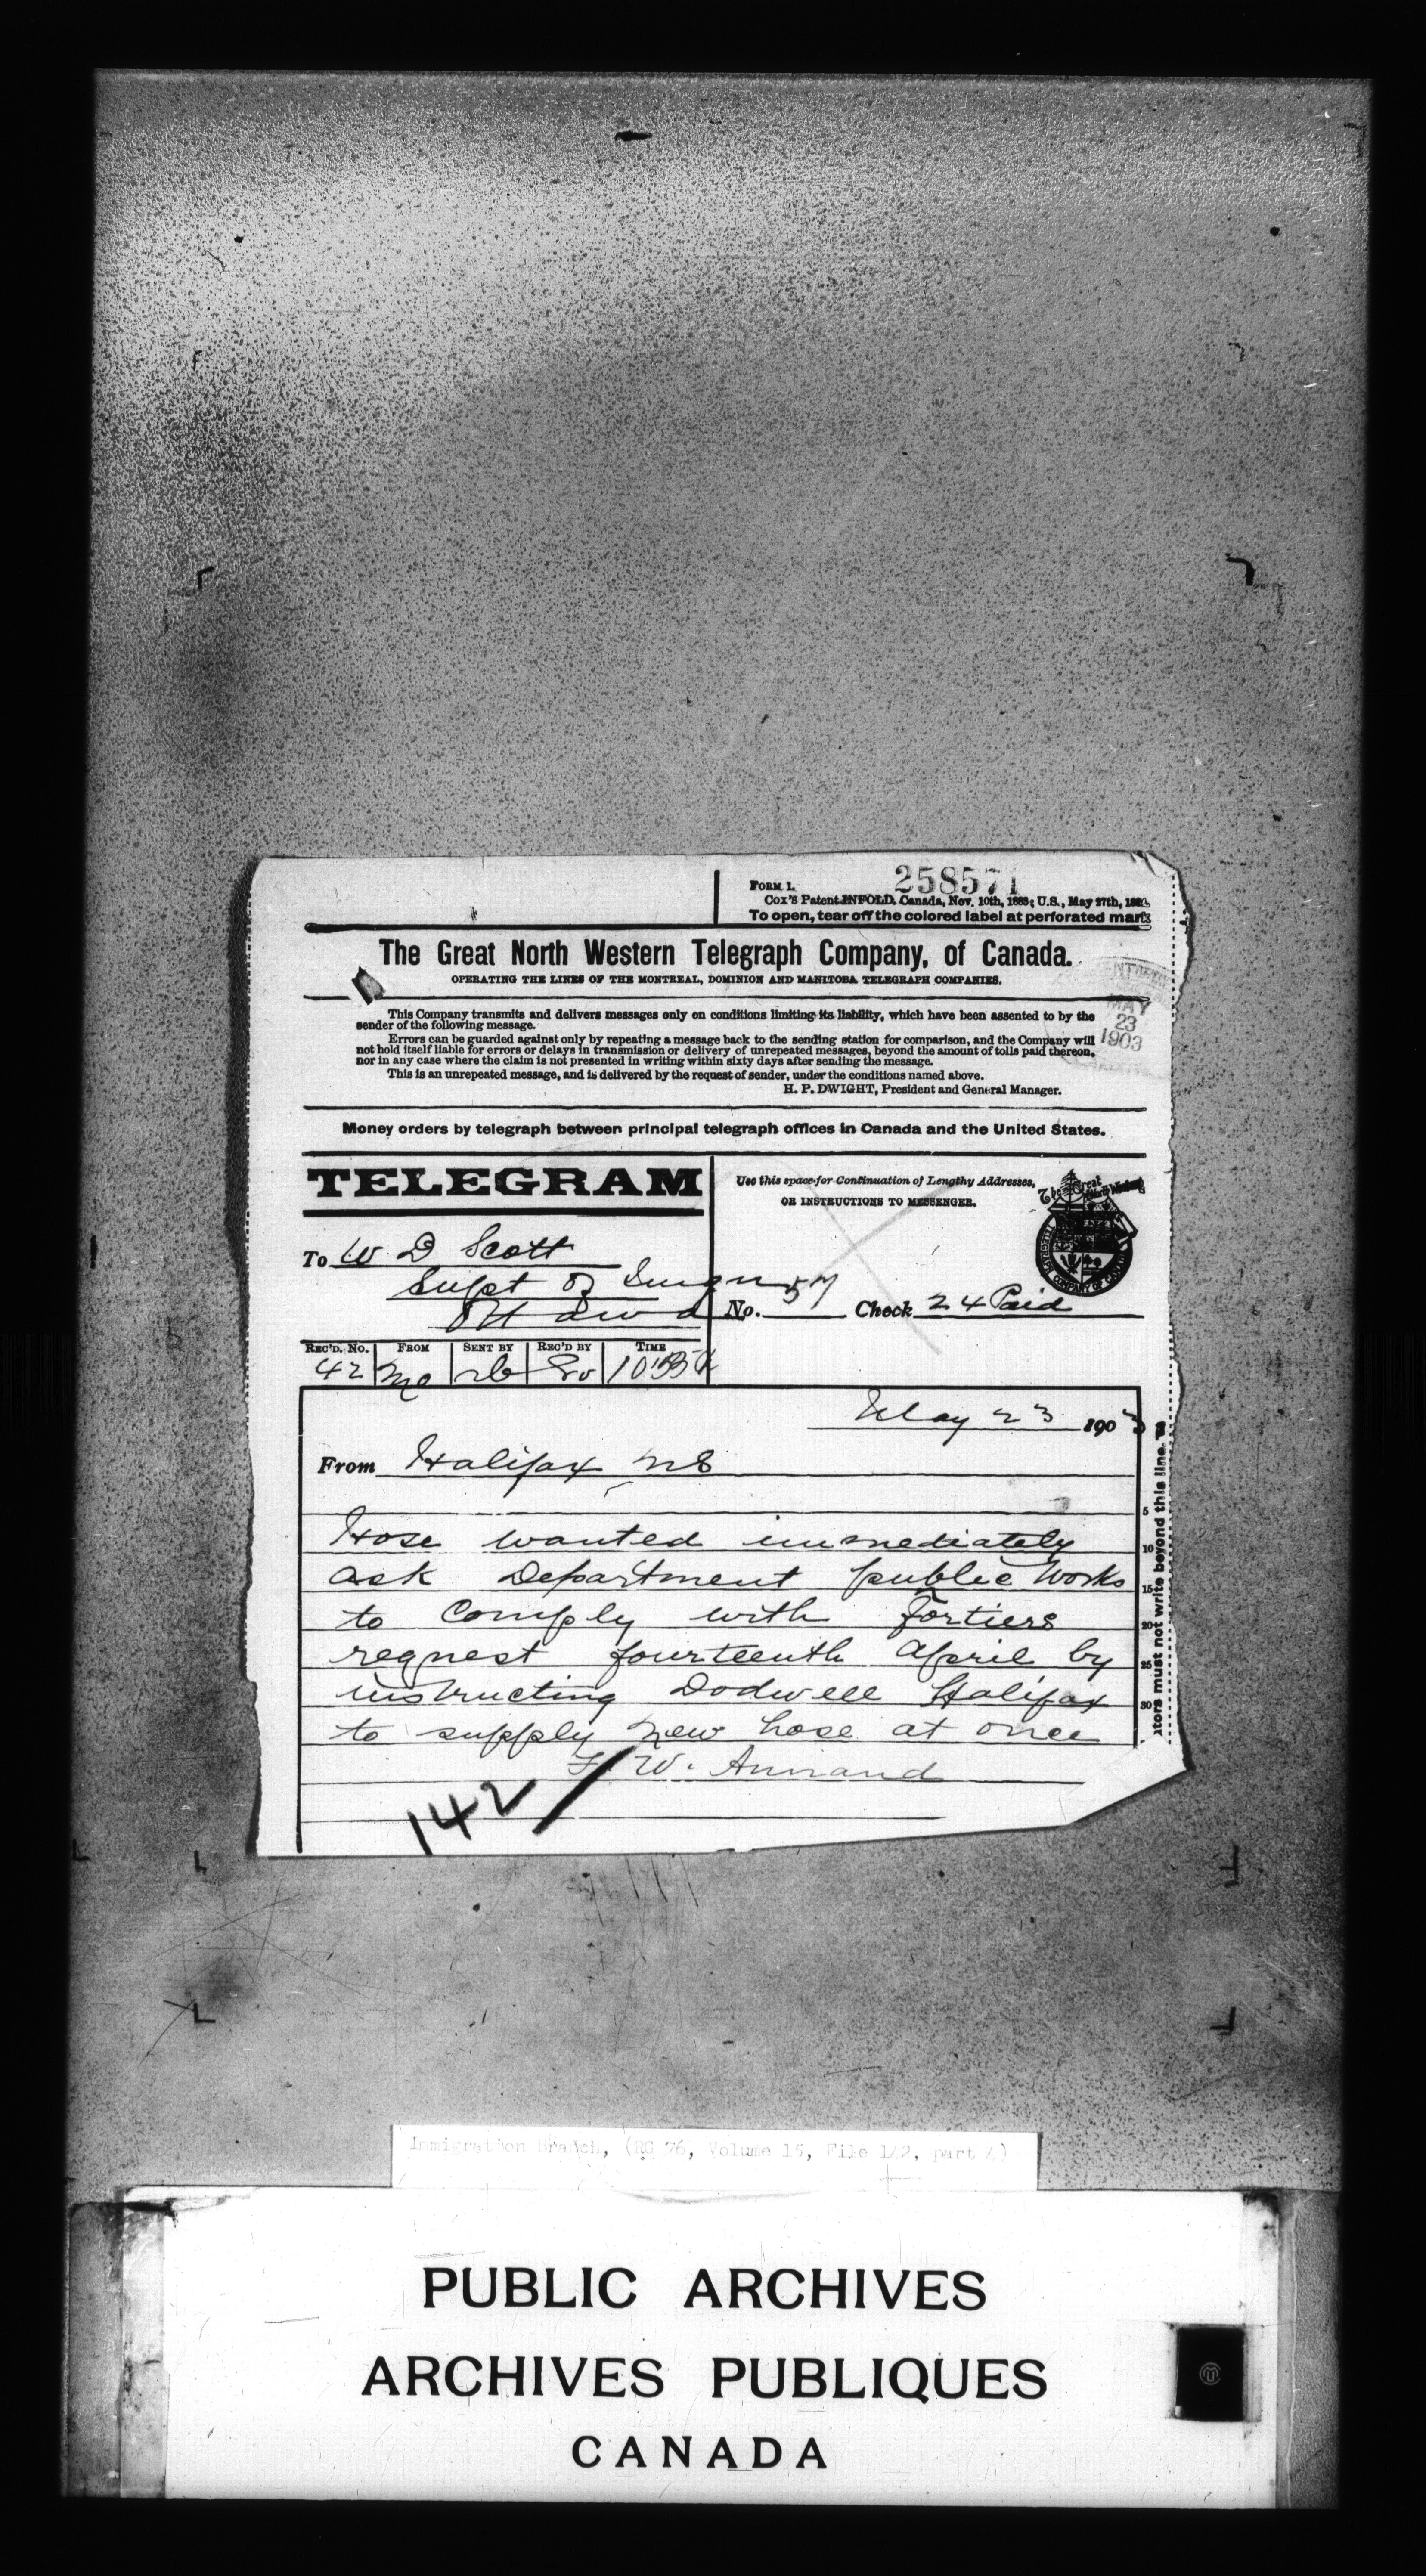 258571
FORM 1.
Cox's Patent INFOLD. Canada, Nov. 10th, 1883; U.S., May 27th,
To open, tear off the colored label at perforated mark
The Great North Western Telegraph Company, of Canada.
OPERATING THE LINES OF THE MONTREAL, DOMINION AND MANITOBA TELEGRAPH COMPANIES.
MAY
23
1903
This Company transmits and delivers messages only on conditions limiting its liability, which have been assented to by the
sender of the following message.
Errors can be guarded against only by repeating a message back to the sending station for comparison, and the Company will
not hold itself liable for errors or delays in transmission or delivery of unrepeated messages, beyond the amount of tolls paid thereon,
nor in any case where the claim is not presented in writing within sixty days after sending the message.
This is an unrepeated message, and is delivered by the request of sender, under the conditions named above.
H. P. DWIGHT, President and General Manager.
Money orders by telegraph between principal telegraph offices in Canada and the United States.
TELEGRAM
Use this space for Continuation of Lengthy Addresses,
OR INSTRUCTIONS TO MESSENGER.
The Great North Western
TELEGRAPH COMPANY OF CANADA
To W D Scott
Supt of Immgn
Ottawa
No. 57 Check 24 Paid
REC'D. No. FROM SENT BY REC'D BY TIME
42
May 23 1903
From Halifax NS
Hose wanted immediately
ask Department public works
to comply with Fortiers
request fourteenth April by
instructing Dodwell Halifax
to supply new hose at once
F. W. Annand
142
5
10
15
20
25
30
ators must not write beyond this line.
Immigration Branch, (RG 76, Volume 15, File 142, part 4)
PUBLIC ARCHIVES
ARCHIVES PUBLIQUES
CANADA